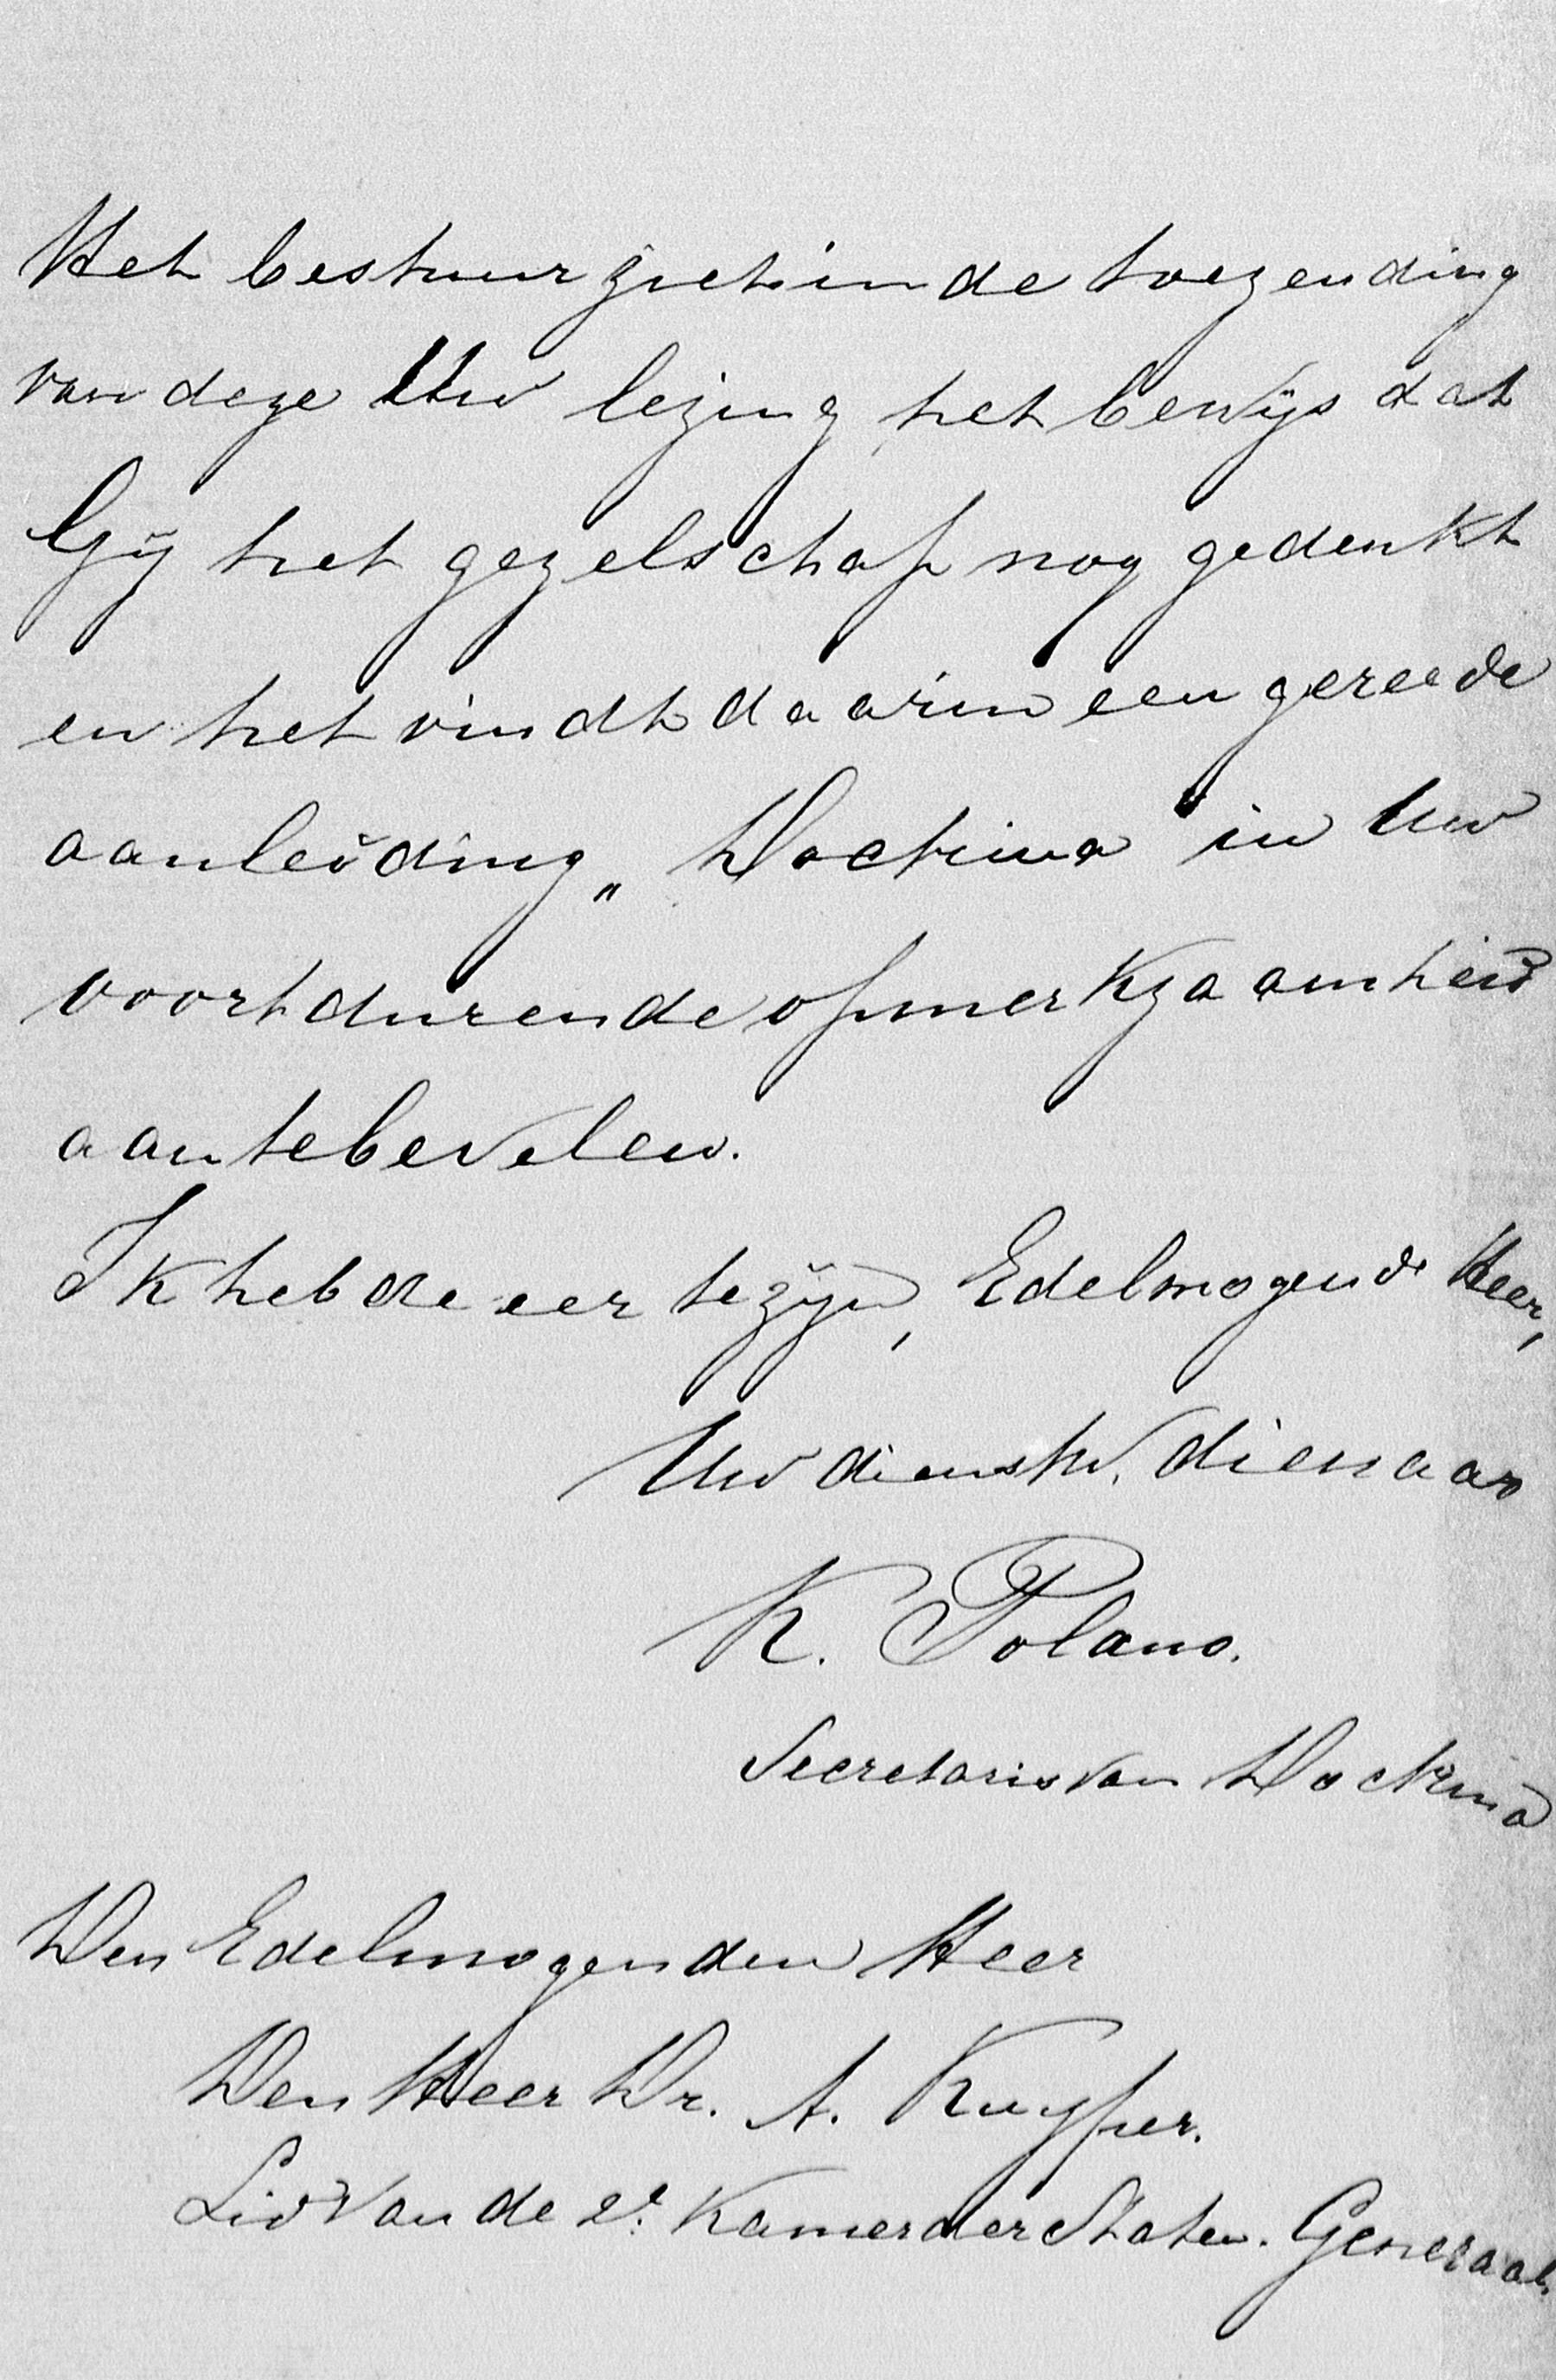 Het bestuur ziet in de toezending
van deze Uw lezing het bewijs dat
Gij het gezelschap nog gedenkt
en het vindt daarin een gereede
aanleiding „Doctrina" in Uw
voortdurende opmerkzaamheid
aantebevelen.
Ik heb de eer te zijn, Edelmogende Heer,
Uw dienstw. dienaar
K. Polano.
Secretaris van Doctrina
Den Edelmogenden Heer
Den Heer Dr. A. Kuyper.
Lid van de 2e Kamer der Staten. Generaal.